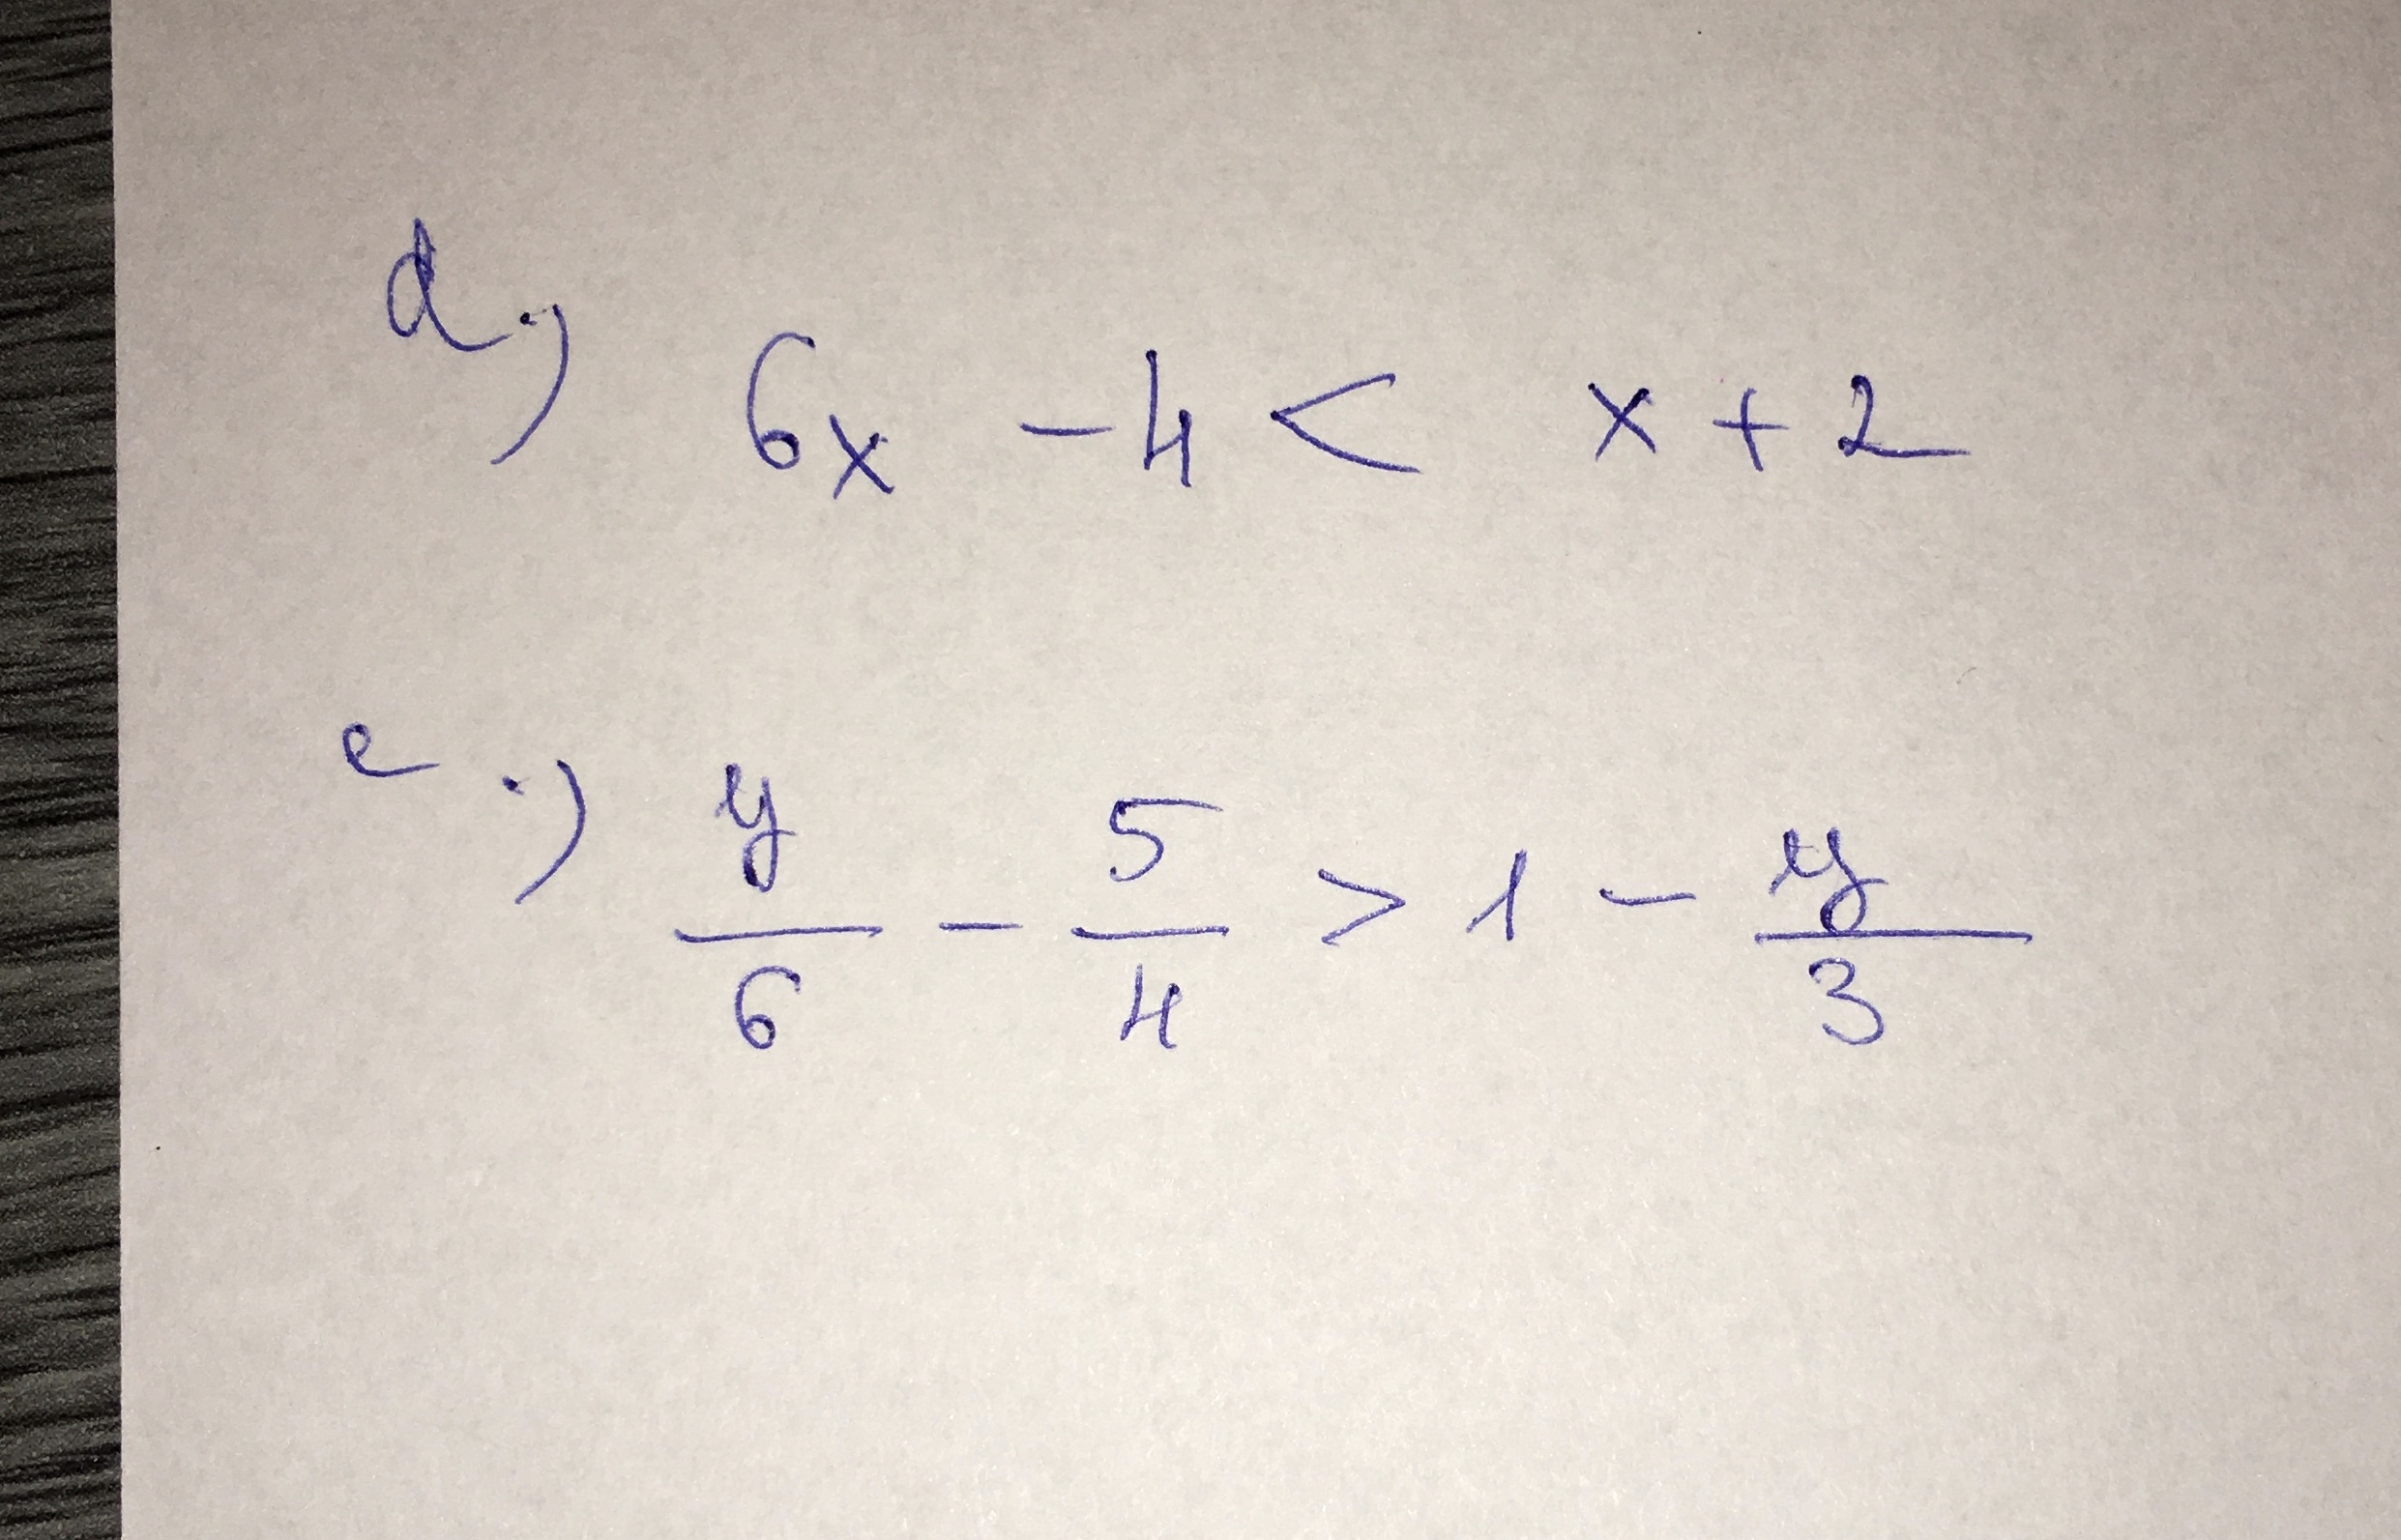 d.) 6x - 4 < x + 2
e.) y/6 - 5/4 > 1 - y/3